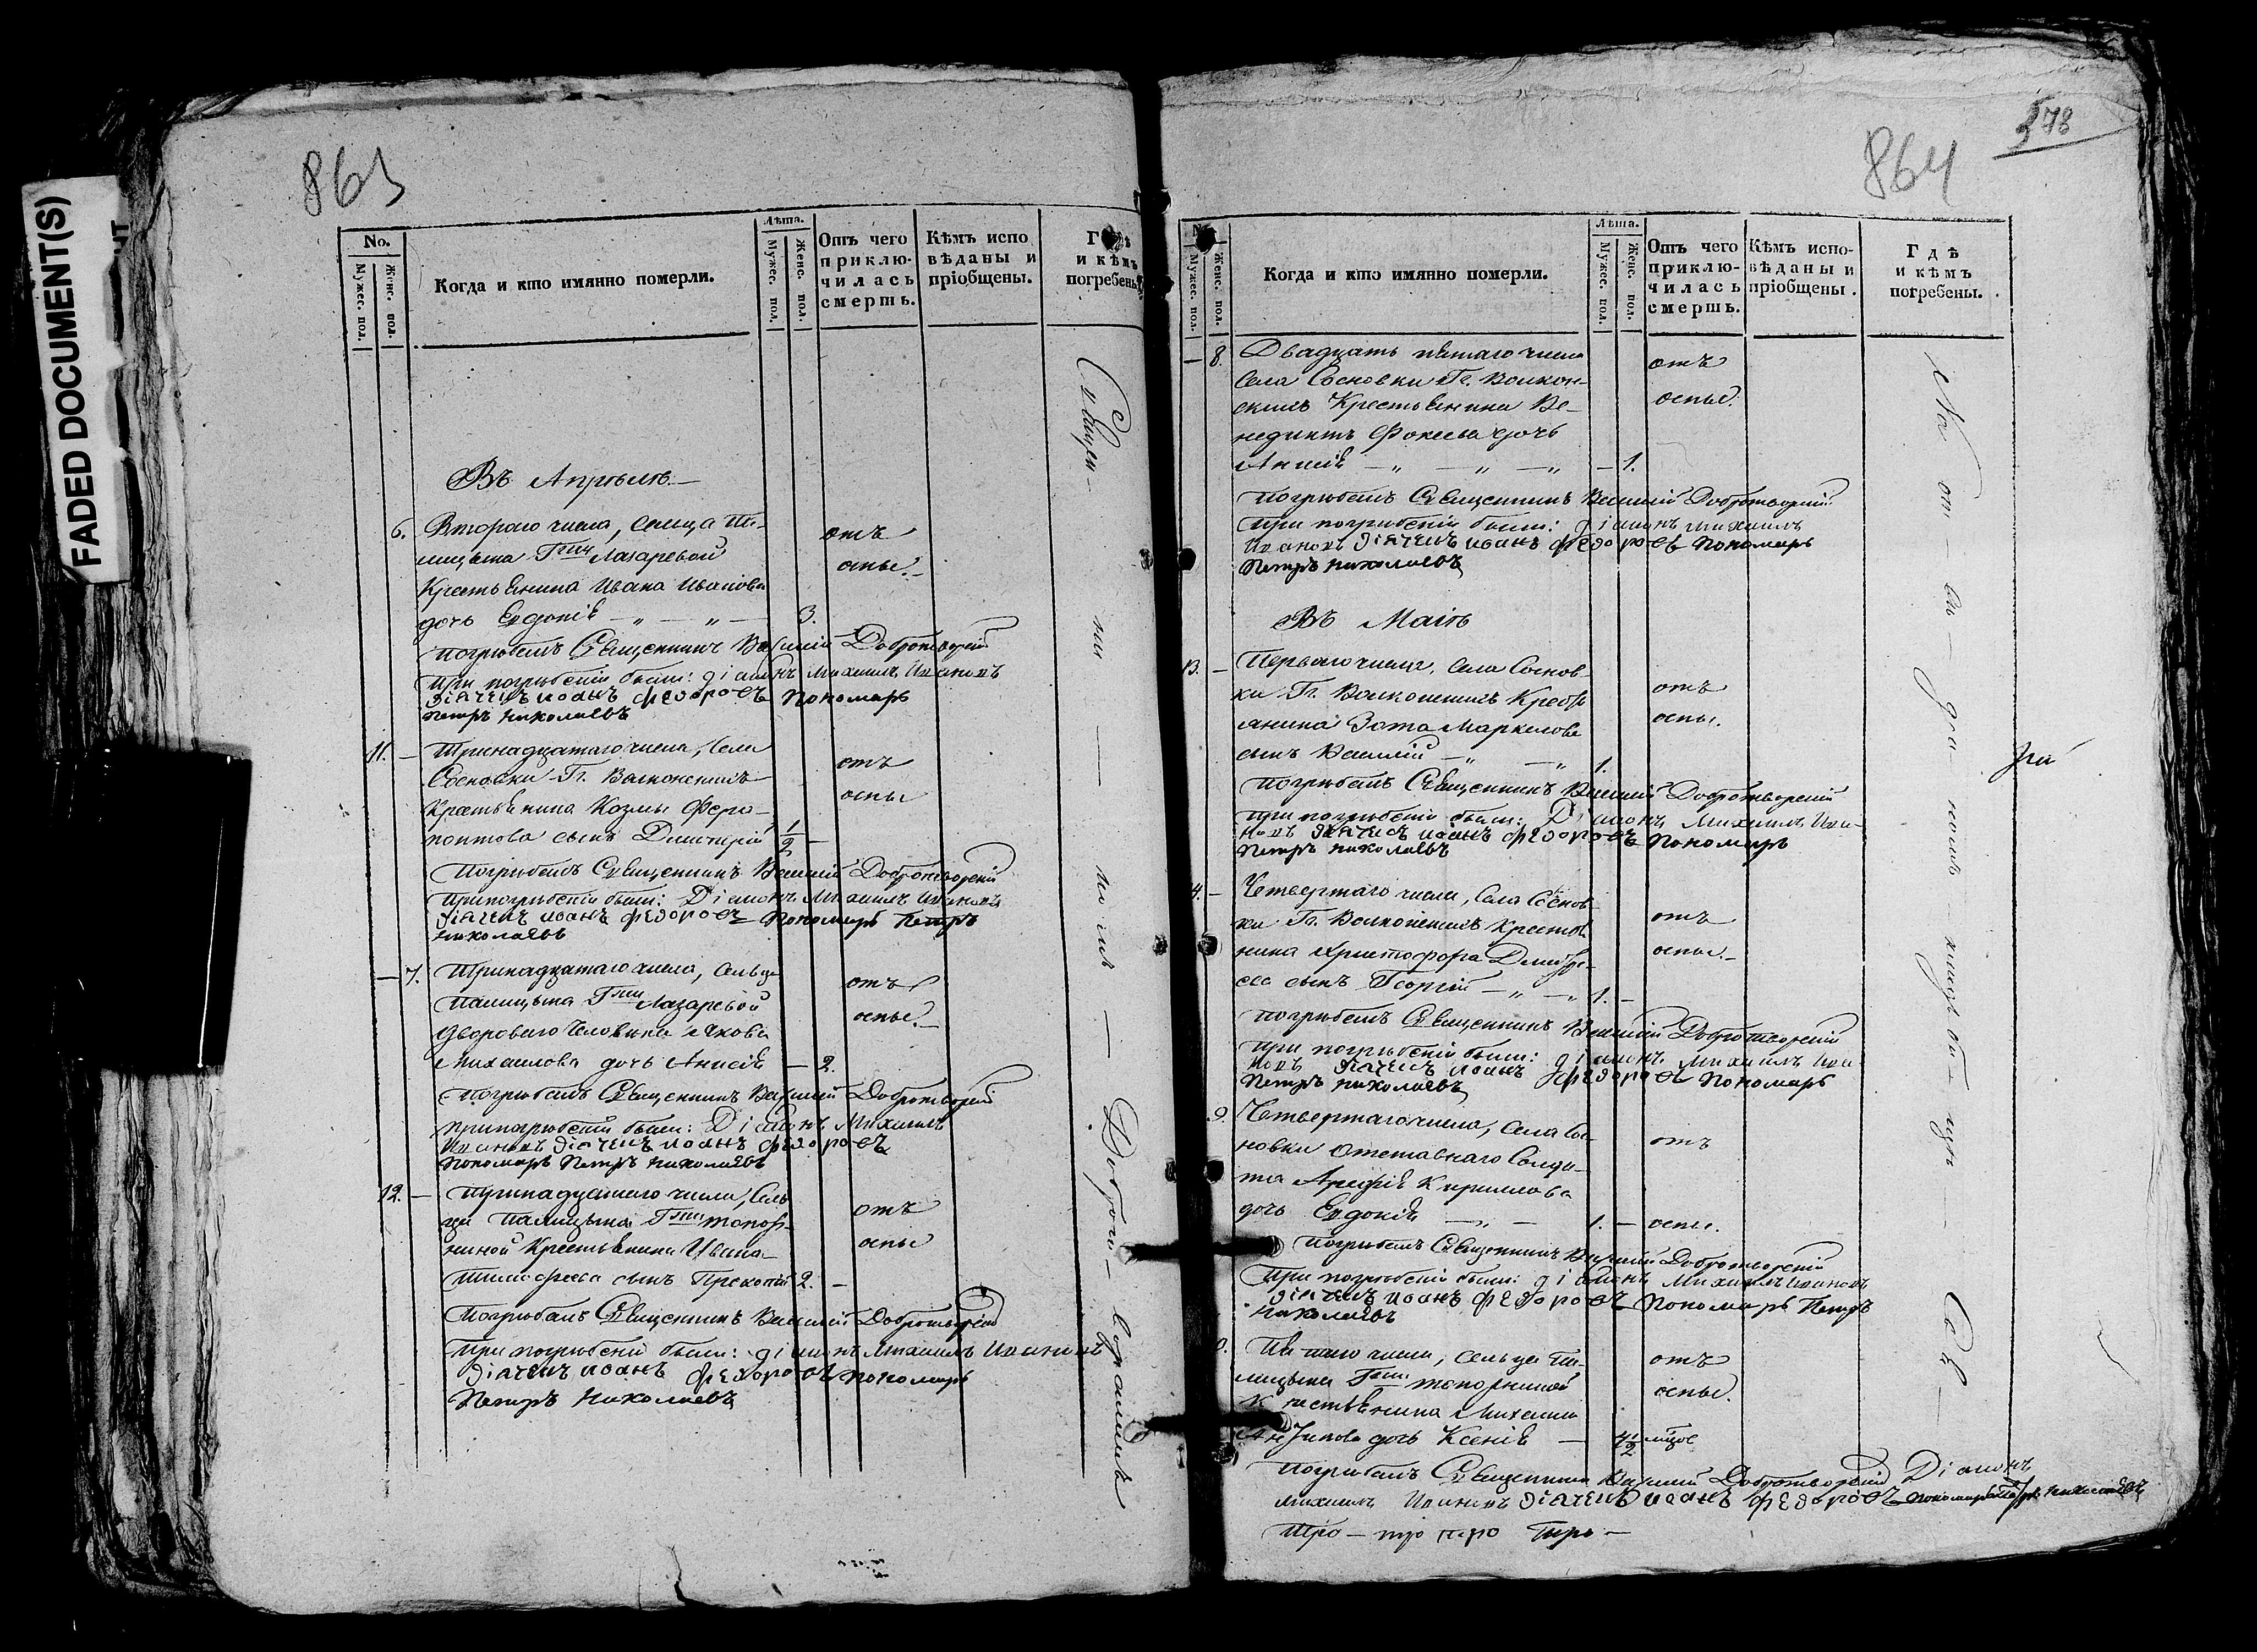 FADED DOCUMENT(S)
863
No.
Мужес. пол.
Женс. пол.
Когда и кто имянно померли.
Лѣта.
Мужес. пол.
Женс. пол.
Отъ чего приклю-чилась смерть.
Кѣмъ испо вѣданы и пріобщены.
Гдѣ и кѣмъ погребены.
Въ Апрѣлѣ.—
6. Втораго числа, сельца Па-
лицына Гжи Лазаревой
отъ
оспы.—
Крестьянина Ивана Иванова
дочь Евдокія — „ — „ — 3.
погребалъ Священникъ Василій Добротворскій
При погребеніи были: діаконъ Михаилъ Ивановъ
діячекъ иоанъ федоровъ Пономарь
Петръ николаевъ
11. — Тринадцатаго числа, Села
Сосновки Гг. Волконскихъ
отъ
оспы
Крестьянина Козмы Фера-
понтова сынъ Димитрій 1/2 —
Погребалъ Священникъ Василій Добротворскій
При погребеніи были: Діаконъ Михаилъ Ивановъ
діячекъ иоанъ федоровъ Пономарь Петръ
николаевъ
— 7. Тринадцатаго числа, Сельца
Палицына Гжи Лазаревой
отъ
оспы.—
двороваго человѣка Іякова
Михаилова дочь Анисія — 2.
Погребалъ Священникъ Василій Добротворскій
При погребеніи были: Діаконъ Михаилъ
Ивановъ діячекъ иоанъ федоровъ
Пономарь Петръ николаевъ
12. — Тринадцатаго числа, Сель-
ца Палицына Гжи Топор-
отъ
оспы
ниной Крестьянина Ивана
Тимофеева сынъ Прокопій 2. —
Погребалъ Священникъ Василій Добротворскій
При погребеніи были: діаконъ Михаилъ Ивановъ
діячекъ иоанъ федоровъ пономарь
Петръ николаевъ
Священ-
ни — комъ — Добро-
864
578
Мужес. пол.
Женс. пол.
Когда и кто имянно померли.
Лѣта.
Мужес. пол.
Женс. пол.
Отъ чего приклю-чилась смерть.
Кѣмъ испо-вѣданы и пріобщены.
Гдѣ и кѣмъ погребены.
— 8. Двадцать пятаго числа
Села Сосновки Гг. Волкон-
отъ
оспы.
скихъ Крестьянина Ве-
недикта Фокеева дочь
Анисія — „ — „ — „ — 1.
погребалъ Священникъ Василій Добротворскій
При погребеніи были: діаконъ Михаилъ
Ивановъ діячекъ иоанъ федоровъ Пономарь
Петръ николаевъ
Въ Маіѣ
13. — Перваго числа, Села Соснов-
ки Гг. Волконскихъ Кресть-
отъ
оспы.
янина Зота Маркелова
сынъ Василій — „ — „ 1.
Погребалъ Священникъ Василій Добротворскій
При погребеніи были: Діаконъ Михаилъ Ива-
новъ діячекъ иоанъ федоровъ Пономарь
Петръ николаевъ
4. — Четвертаго числа, Села Соснов-
ки Гг. Волконскихъ Крестья-
отъ
оспы.—
нина Христофора Дмитрі-
ева сынъ Георгій — „ — „ 1. —
погребалъ Священникъ Василій Добротворскій
при погребеніи были: діаконъ Михаилъ Ива-
новъ діячекъ иоанъ федоровъ Пономарь
Петръ николаевъ
9. Четвертаго числа, Села Сос-
новки Отставнаго Солда-
отъ
та Арефія Кириллова
дочь Евдокія — „ — 1. — оспы.
погребалъ Священникъ Василій Добротворскій
При погребеніи были: діаконъ Михаилъ Ивановъ
діячекъ иоанъ федоровъ Пономарь Петръ
николаевъ
0. Пятаго числа, Сельца Па-
лицына Гжи Топорниной
отъ
оспы.
Крестьянина Михаила
Антипова дочь Ксенія —
погребалъ Священникъ Василій Добротворскій Діаконъ
Михаилъ Ивановъ діячекъ иоанъ федоровъ пономарь Петръ николаевъ